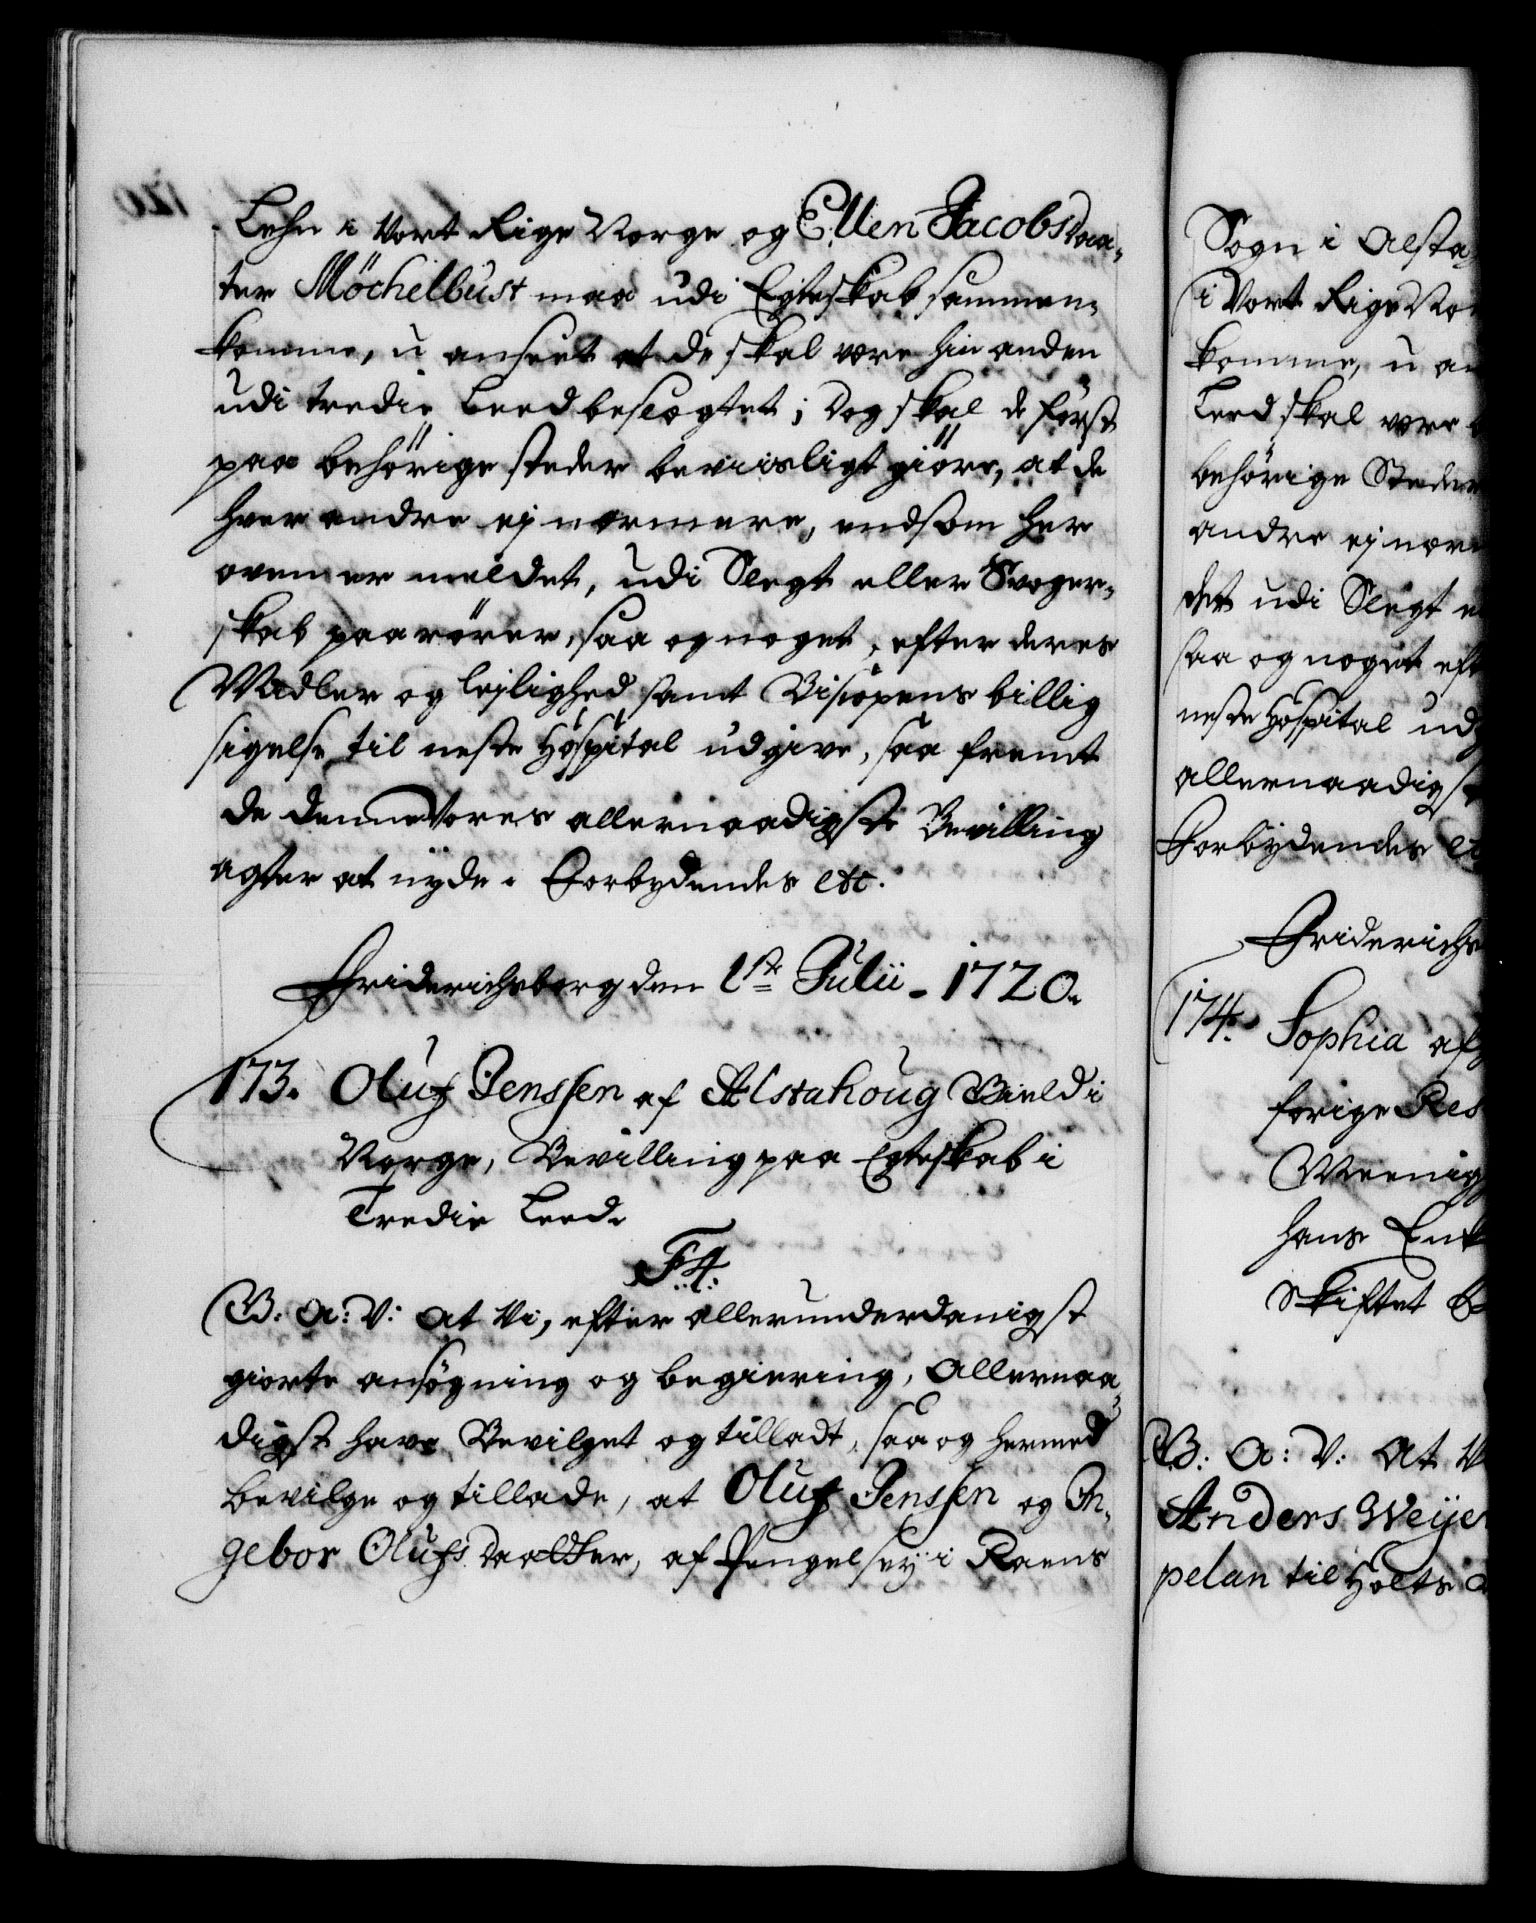 Lehn i Vort Rige Norge og Ellen Jacobsdaa-
ter Möchelbust maa udi Egteskab sammen-
komme, u anseet at de skal være hin anden
udi tredie Leed beslægtet; Dog skal de först
paa behörige steder beviisligt giöre, at de
hver andre ej nærmere, end som her
oven er meldet, udi Slegt eller Svoger-
skab paarörer, saa og noget, efter deres
Middler og lejlighed samt Biscopens billig
sigelse til neste Hospital udgive, saa fremt
de denne Vores allernaadigste Bevilling
agter at nyde. Forbydendes etc.
Friderichsborg den 1ste Julii - 1720.
173. Oluf Jenssen af Alstahoug Gield i
Norge, Bevilling paa Egteskab i
Tredie Leed.
F4.
G: A: V: At Vi, efter allerunderdanigst
giorte ansögning og begiering, Allernaa-
digst have Bevilget og tilladt, saa og hermed
bevilge og tillade, at Oluf Jenssen og In-
gebor Olufs Daatter, af Pengelsey i Raens
Sogn i Alsta
i Vort Rige Nor
komme, u an
Leed skal være
behörige Steder
andre ej nær
det udi Slegt e
saa og noget eft
neste Hospital ud
allernaadigst
Forbydendes et
Friderichs
174. Sophia af
forige Res
Meenig
hans Enk
Skiftet
G: A: V: At V
Anders Weyer
pelan til Holts